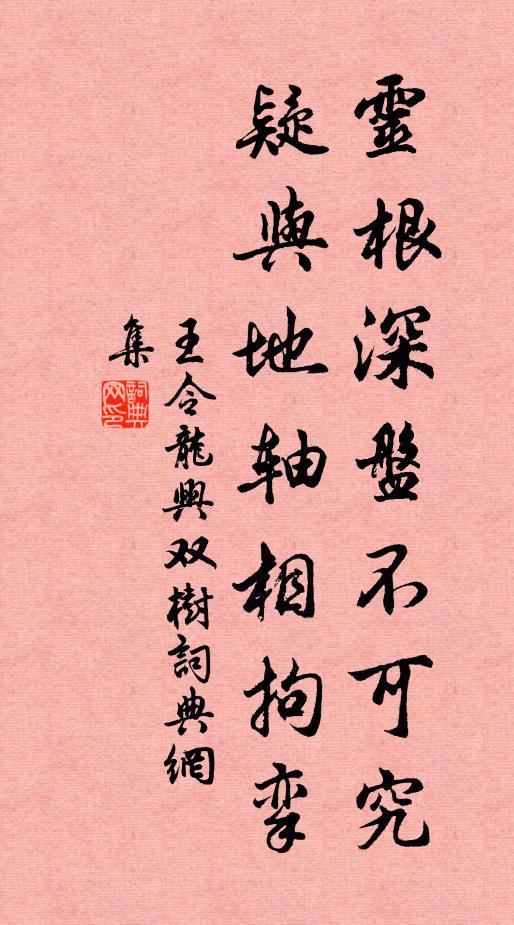 靈根深盤不可究
疑與地轴相拘挛
王令龍興双樹詞典網
集
詞典網印